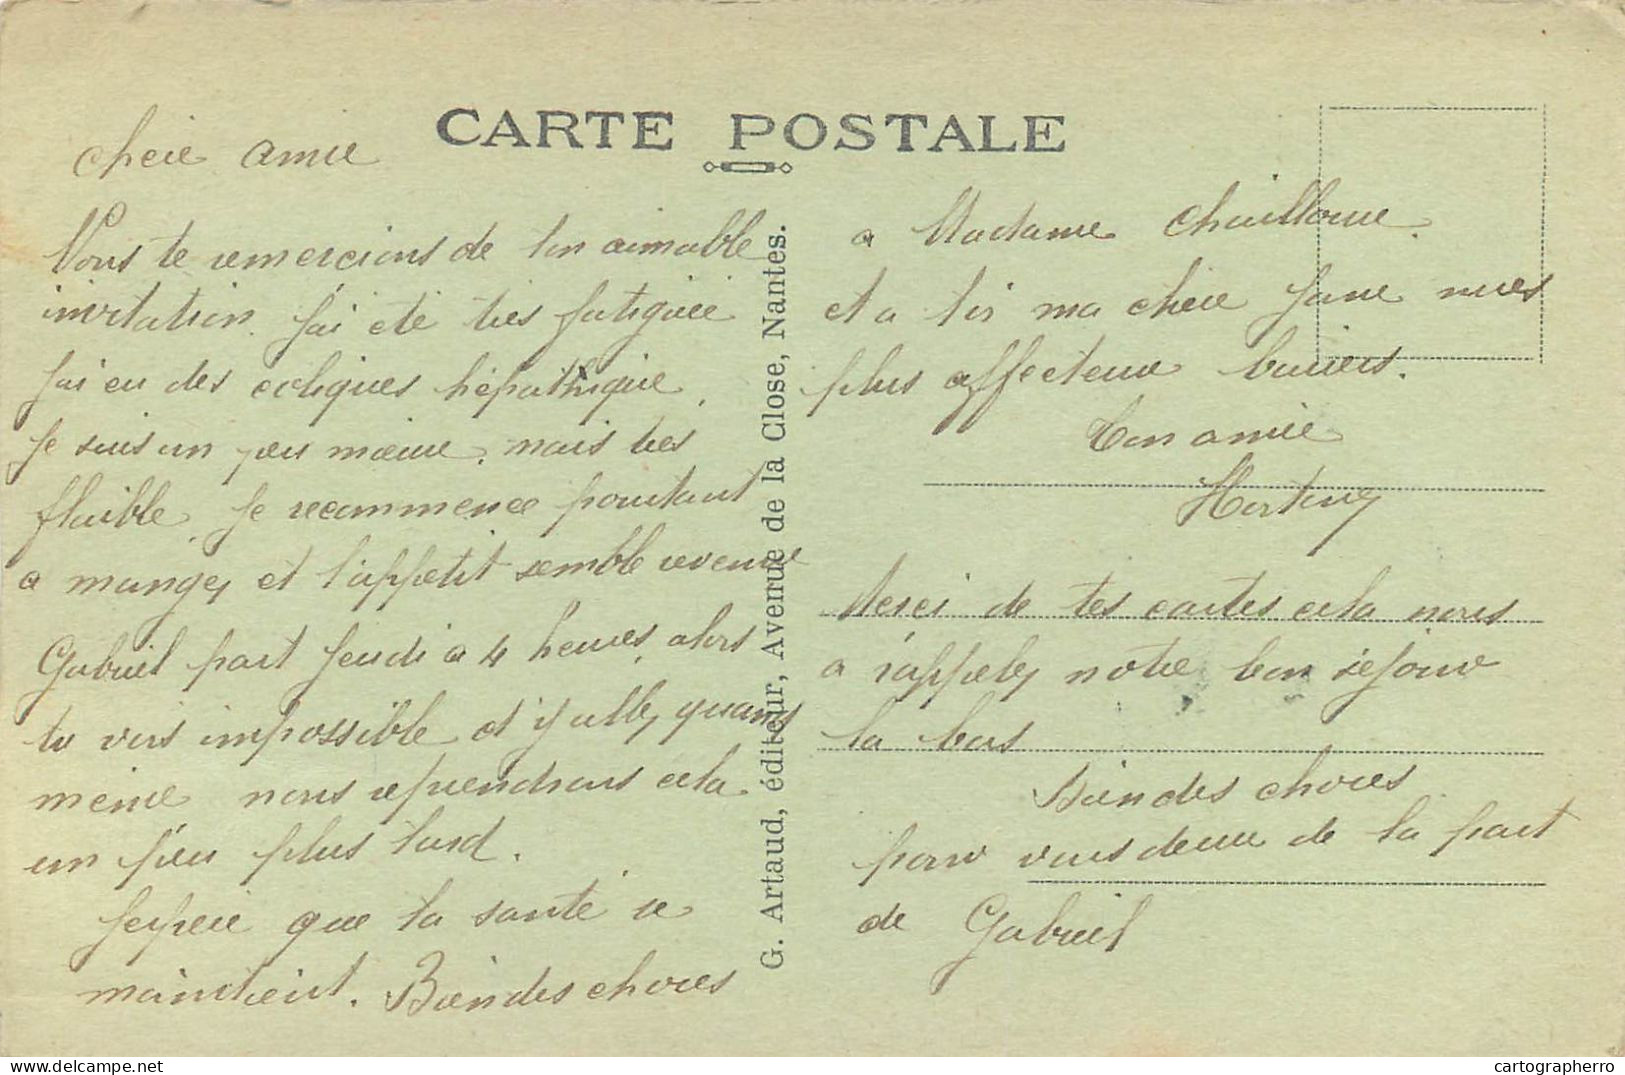 CARTE POSTALE
chère amie
Nous te remercions de ton aimable
invitation. J'ai été très fatiguée
J'ai eu des coliques hépathique,
Je suis un peu mieux, mais très
flaible. Je recommence pourtant
a manger et l'appetit semble revenu
Gabriel part Jeudi à 4 heures, alors
tu vois impossible d'y aller, quand
même nous reprendrons cela
un peu plus tard.
J'espère que ta santé se
maintient. Bien des choses
a Madame
et a toi ma chère Jane mes
plus affectueux baisers.
Ton amie
Merci de tes cartes cela nous
a rappeler notre bon séjour
la bas
Bien des choses
pour vous deux de la part
de Gabriel
G. Artaud, éditeur, Avenue de la Close, Nantes.
cartographerro